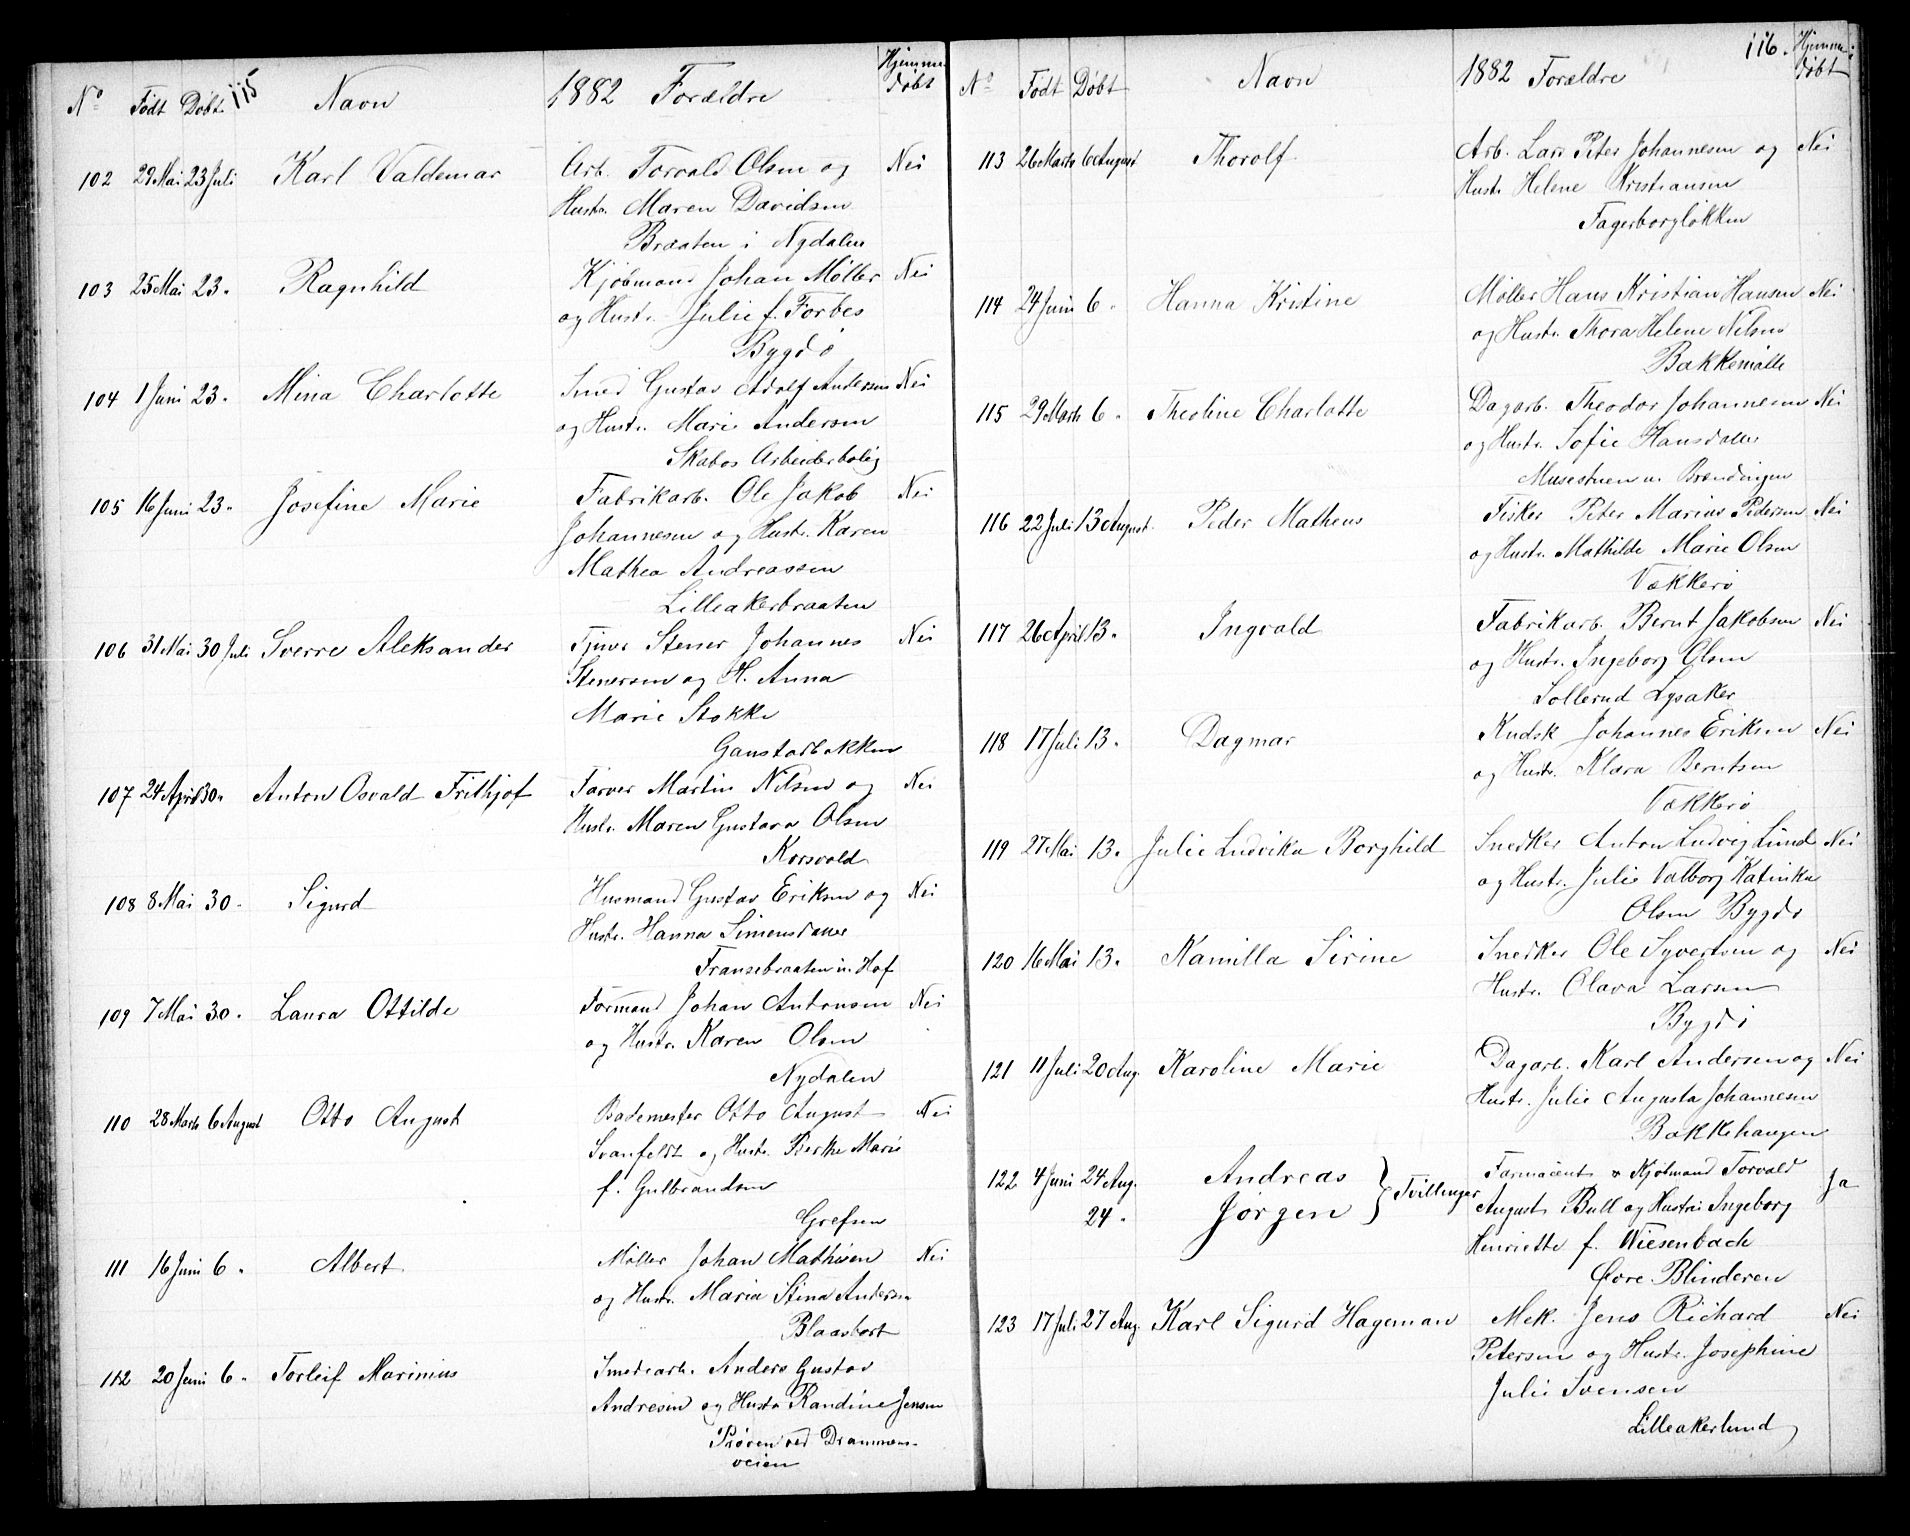 No Født Døbt 115 Navn 1882 Forældre Hjemme-
døbt
102 29 Mai 23 Juli Karl Valdemar Arb. Torvald Olsen og Nei
Hustr. Maren Davidsen
Braaten i Nydalen
103 25 Mai 23 " Ragnhild Kjøbmand Johan Møller Nei
og Hustr. Julie f. Forbes
Bygdø
104 1 Juni 23 " Mina Charlotte Smed Gustav Adolf Andersen Nei
og Hustr. Marie Andersen
Skabos Arbeiderbolig
105 16 Juni 23 " Josefine Marie Fabrikarb. Ole Jakob Nei
Johannesen og Hustr. Karen
Mathea Andreassen
Lilleakerbraaten
106 31 Mai 30 Juli Sverre Aleksander Tjener Stener Johannes Nei
Stenersen og H. Anna
Marie Stokke
Gaustadbakken
107 24 April 30 " Anton Osvald Frithjof Farver Martin Nilsen og Nei
Hustr. Maren Gustava Olsen
Korsvold
108 8 Mai 30 " Sigurd Husmand Gustav Eriksen og Nei
Hustr. Hanna Simensdatter
Fransebraaten u. Hof
109 7 Mai 30 " Laura Ottilde Formand Johan Antonsen Nei
og Hustr. Karen Olsen
Nydalen
110 28 Marts 6 August Otto August Bademester Otto August Nei
Svanfeldt og Hustr. Berthe Marie
f. Gulbrandsen
Grefsen
111 16 Juni 6 " Albert Møller Johan Mathisen Nei
og Hustr. Maria Stina Andersen
Blaasbort
112 20 Juni 6 " Torleif Marinius Smedearb. Anders Gustav
Andresen og Hustr Randine Jensen
Prøven ved Drammens-
veien
No Født Døbt Navn 1882 Forældre 116. Hjemme-
døbt
113 26 Marts 6 August Thorolf Arb. Lars Peter Johannesen og Nei
Hustr. Helene Kristiansen
Fagerborgløkken
114 24 Juni 6 " Hanna Kristine Møller Hans Kristian Hansen Nei
og Hustr. Thora Helene Nilsen
Bakkemølle
115 29 Marts 6 " Theoline Charlotte Dagarb. Theodor Johannesen Nei
og Hustr. Sofie Hansdatter
Musestuen u. Brændingen
116 22 Juli 13 August. Peder Matheus Fisker Peter Marius Pedersen Nei
og Hustr. Mathilde Marie Olsen
Vækkerø
117 26 April 13 " Ingvald Fabrikarb. Bernt Jakobsen Nei
og Hustr. Ingeborg Olsen
Sollerud Lysaker
118 17 Juli 13 " Dagmar Kudsk Johannes Eriksen Nei
og Hustr. Klara Berntsen
Vækkerø
119 27 Mai 13 " Julie Ludvika Borghild Snedker Anton Ludvig Lund Nei
og Hustr. Julie Valborg Katinka
Olsen Bygdø
120 16 Mai 13 " Kamilla Sirine Snedker Ole Syvertsen og Nei
Hustr. Olava Larsen
Bygdø
121 11 Juli 20 Aug. Karoline Marie Dagarb. Karl Andersen og Nei
Hustr. Julie Augusta Johannesen
Bakkehaugen
122 4 Juni 24 Aug. Andreas } Tvillinger Farmaceut & Kjøbmand Torvald Ja
24 " Jørgen August Bull og Hustru Ingeborg
Henriette f. Wiesenbach
Øvre Blinderen
123 17 Juli 27 Aug. Karl Sigurd Hageman Mek. Jens Richard Nei
Petersen og Hustr. Josephine
Julie Svensen
Lilleakerlund